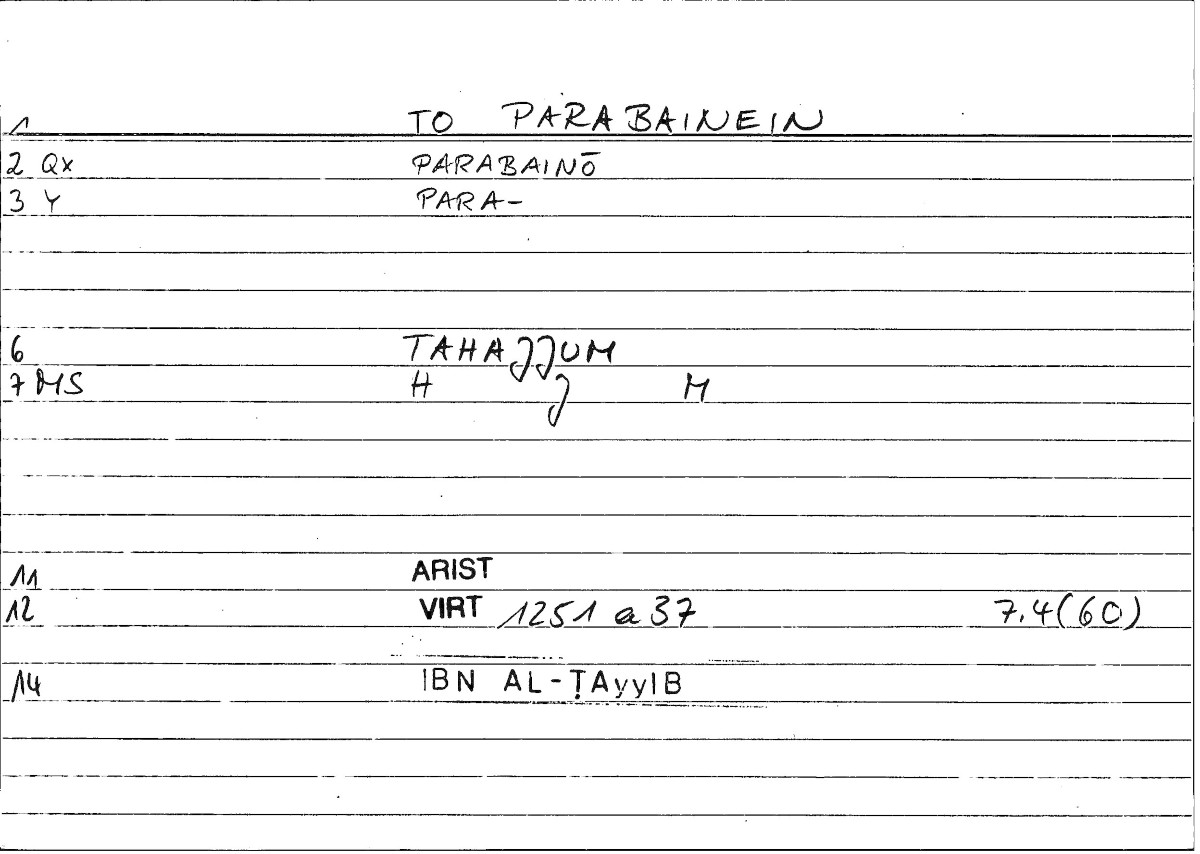 1 TO PARABAINEIN
2 Qx PARABAINŌ
3 Y PARA-
6 TAHAJJUM
7 MS H J M
11 ARIST
12 VIRT 1251 a 37 7.4(60)
14 IBN AL-ṬAyyIB